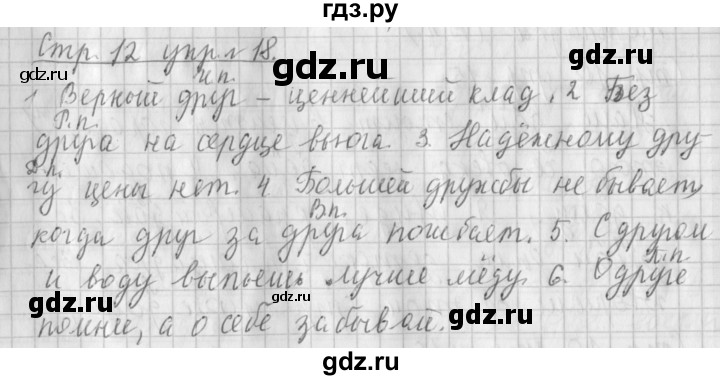 гдз.ру
Стр. 12 упр. 18.
И.п.
1 Верный друг – ценнейший клад. 2 Без
Р.п.
друга на сердце вьюга. 3. Надёжному дру-
Д.п.
гу цены нет. 4 Большей дружбы не бывает,
В.п.
когда друг за друга погибает. 5. С другом
П.п.
и воду выпьешь лучше мёду 6. О друге
помни, а о себе забывай.
gdz.ru
gdz.ru
gdz.ru
gdz.ru
gdz.ru
gdz.ru
gdz.ru
gdz.ru